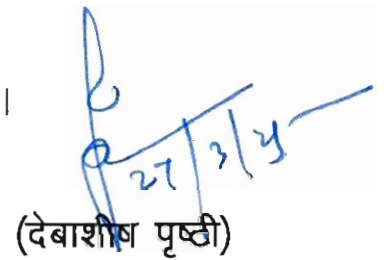 ।
27/3/25
(देबाशीष पृष्टी)